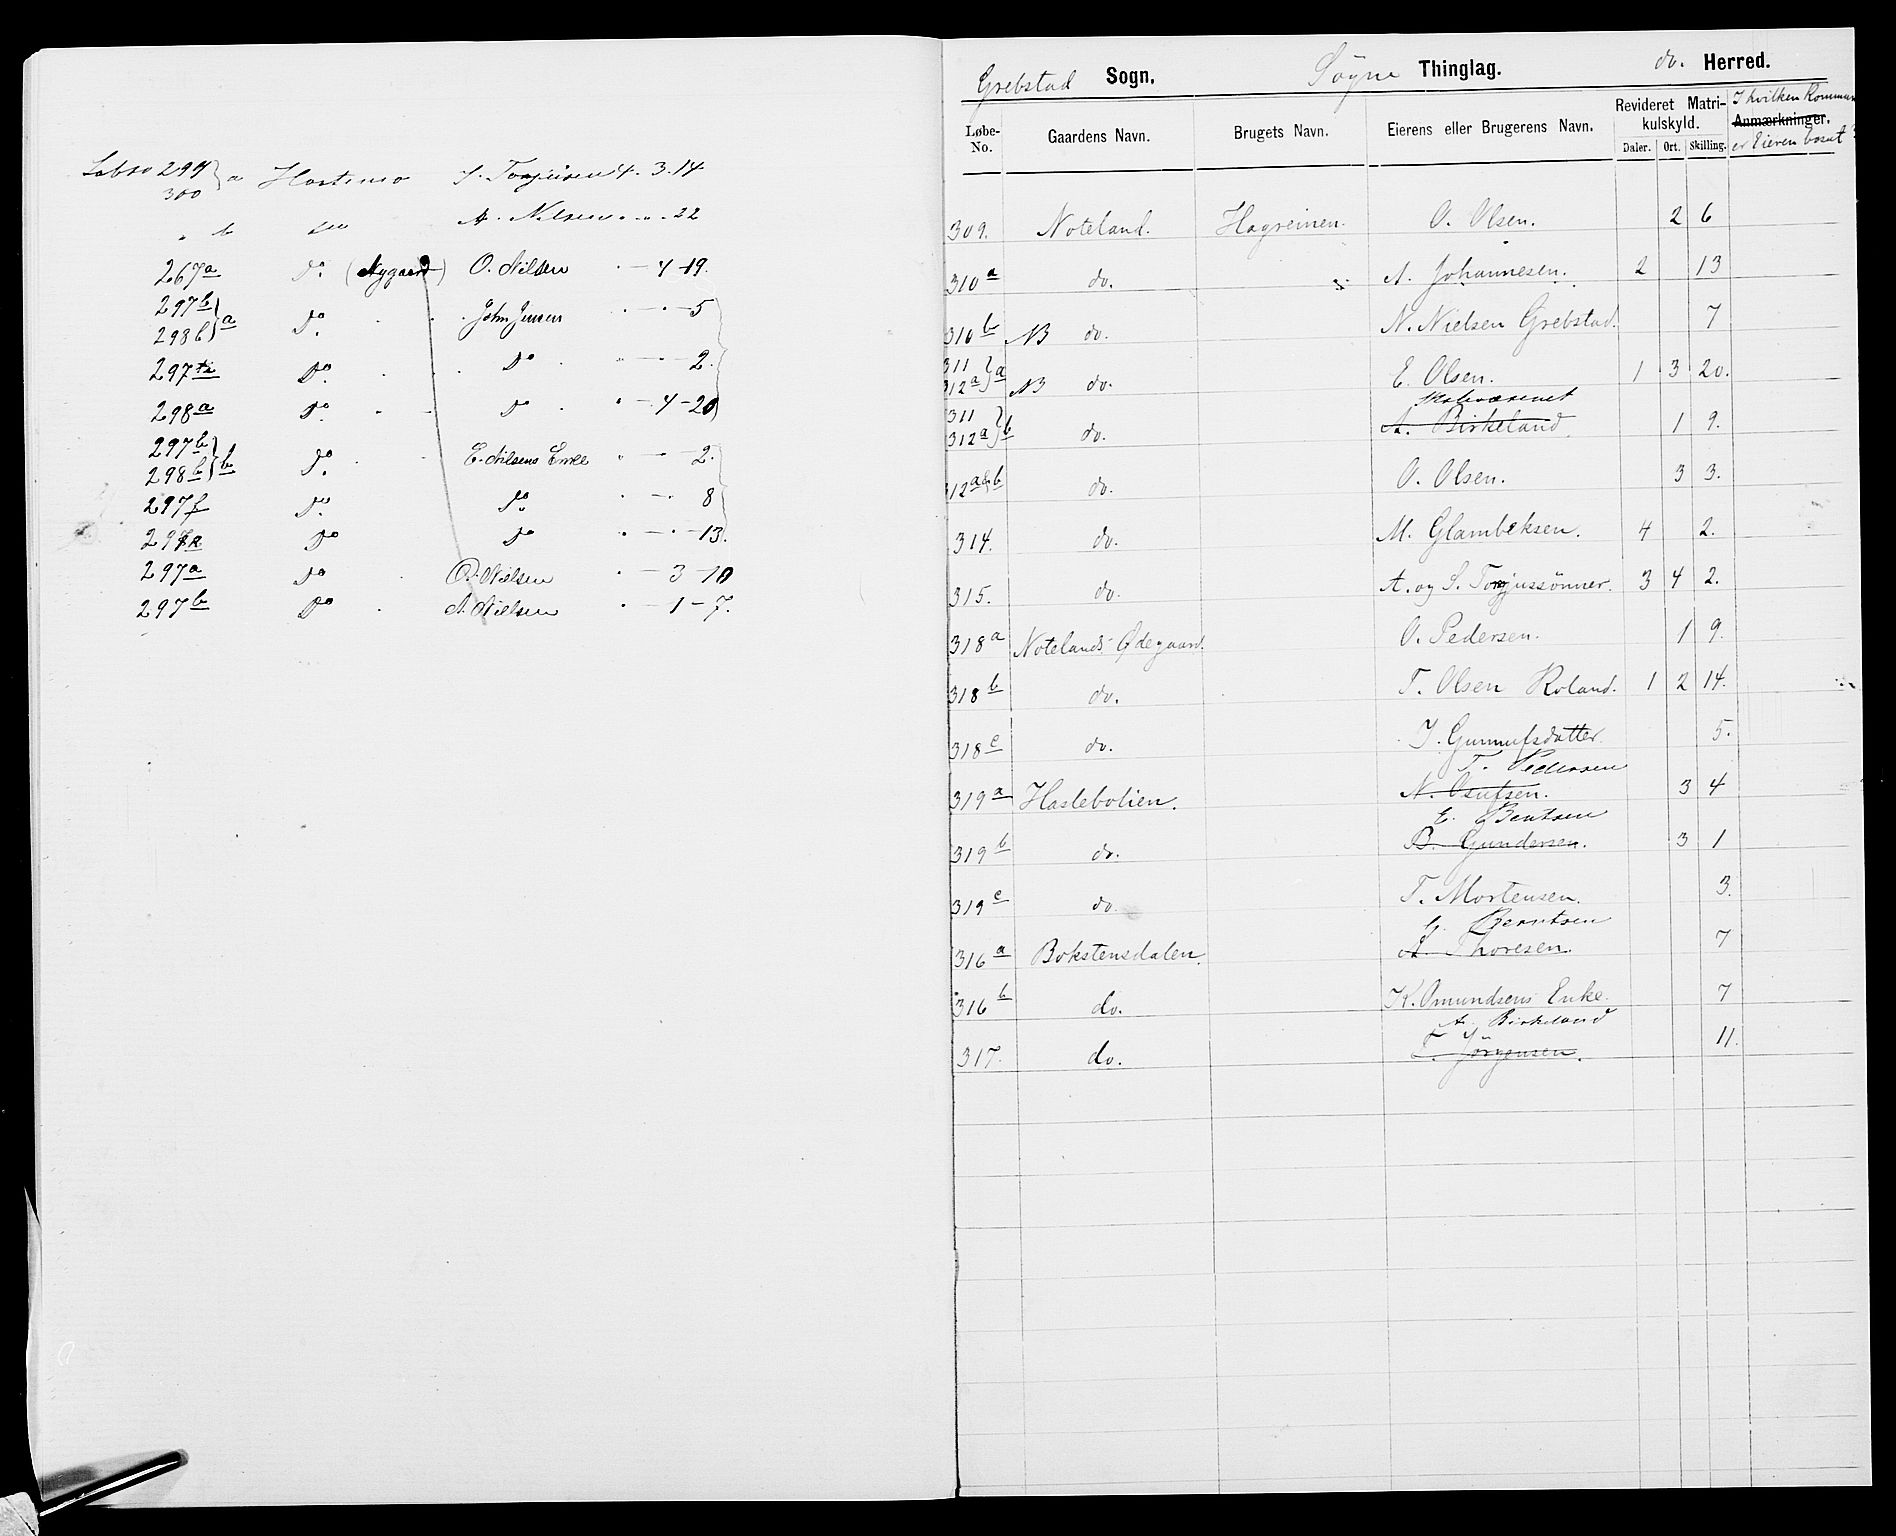 Løbno 299 } a Hortemo S. Torjusen 4. 3. 14
300
" b do A. Nilsen " " " 22
267a Do. (Nygaard) O. Nilsen " — 4 — 19.
297b } a Do. " John Jensen " — " — 5
298b
Do. Do " — " — 2.
298a Do. " Do " — 4 — 20
297b } b Do. " E. Nilsens Enke " — " — 2.
298b
297f Do. Do. " — " — 8
Do Do " — " — 13.
297a Do O. Nilsen " — 3 — 10
297b Do N. Nilsen " — 1 — 7.
Grebstad Sogn. Søgne Thinglag. do. Herred.
Løbe-No. Gaardens Navn. Brugets Navn. Eierens eller Brugerens Navn. Revideret Matrikulskyld. Anmærkninger.
I hvilken Kommune er Eieren bosat?
Daler. Ort. Skilling.
309. Noteland. Hagreinen. O. Olsen. 2 6
310a do. A. Johannesen. 2 13
310b NB do. N. Nielsen Grebstad. 7
311 } a NB do. E. Olsen. 1 3 20.
312a
Skolevæsenet
311 } b do. A. Birkeland. 1 9.
312a
312a&b do. O. Olsen. 3 3.
314. do. M. Glambeksen. 4 2.
315. do. A. og S. Torjussönner. 3 4 2.
318a Notelands Ødegaard. O. Pedersen. 1 9.
318b do. T. Olsen Roland. 1 2 14.
318c do. I. Gunnulfsdatter. 5.
T. Pedersen
319a Haslebolien. N. Osulfsen. 3 4
E. Bentsen
319b do. B. Gundersen. 3 1
319c do. T. Mortensen. 3.
G. Berntsen
316a Bokstensdalen. A. Thoresen. 7
316b do. K. Omundsens Enke. 7
A. Birkeland
317. do. T. Jörgensen. 11.